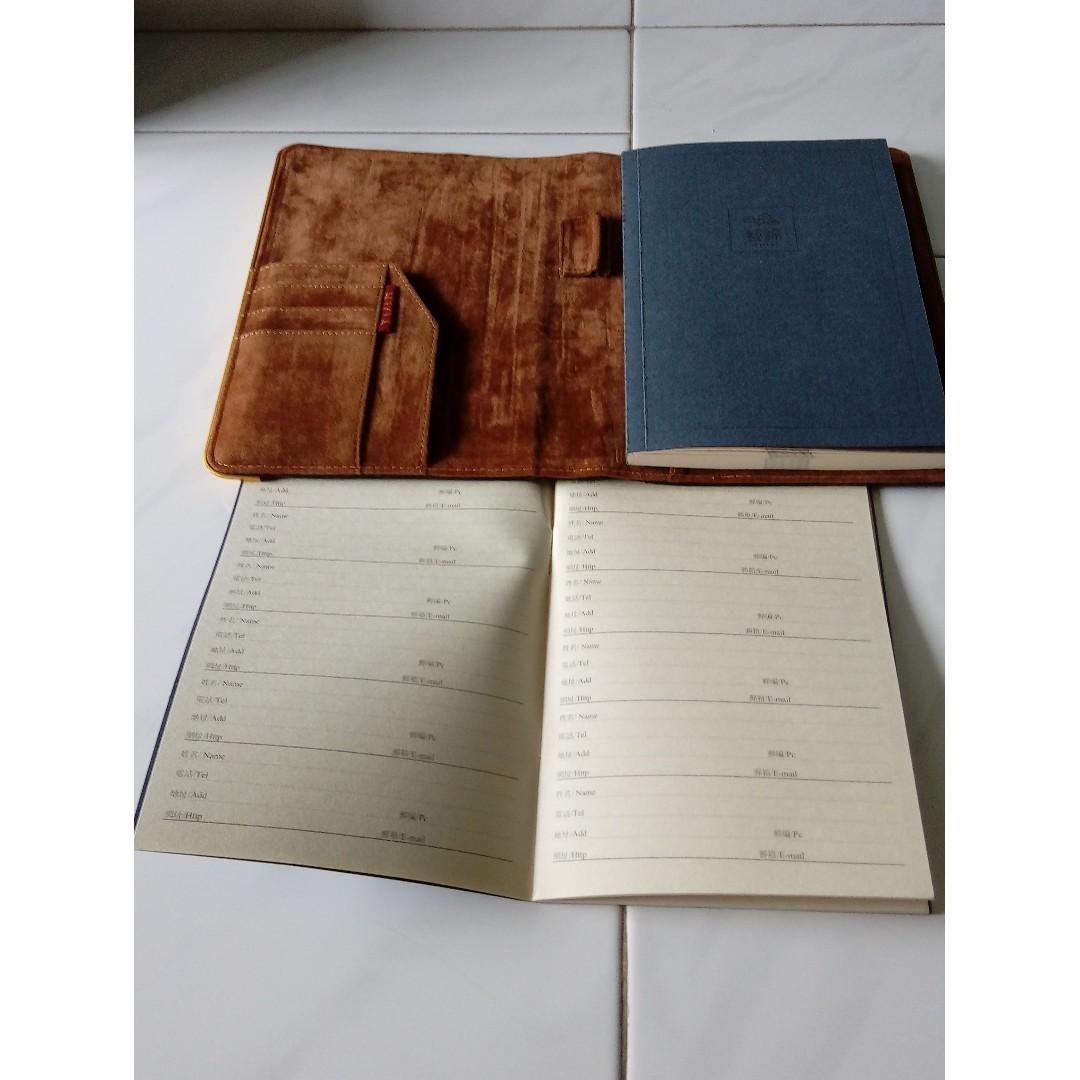 YIAR
地址/Add
郵編/Pc
網址/Http
郵箱/E-mail
姓名/Name
電話/Tel
地址/Add
郵編/Pc
網址/Http
郵箱/E-mail
姓名/Name
電話/Tel
地址/Add
郵編/Pc
網址/Http
郵箱/E-mail
姓名/Name
電話/Tel
地址/Add
郵編/Pc
網址/Http
郵箱/E-mail
姓名/Name
電話/Tel
地址/Add
郵編/Pc
網址/Http
郵箱/E-mail
姓名/Name
電話/Tel
地址/Add
郵編/Pc
網址/Http
郵箱/E-mail
地址/Add
郵編/Pc
網址/Http
郵箱/E-mail
姓名/Name
電話/Tel
地址/Add
郵編/Pc
網址/Http
郵箱/E-mail
姓名/Name
電話/Tel
地址/Add
郵編/Pc
網址/Http
郵箱/E-mail
姓名/Name
電話/Tel
地址/Add
郵編/Pc
網址/Http
郵箱/E-mail
姓名/Name
電話/Tel
地址/Add
郵編/Pc
網址/Http
郵箱/E-mail
姓名/Name
電話/Tel
地址/Add
郵編/Pc
網址/Http
郵箱/E-mail